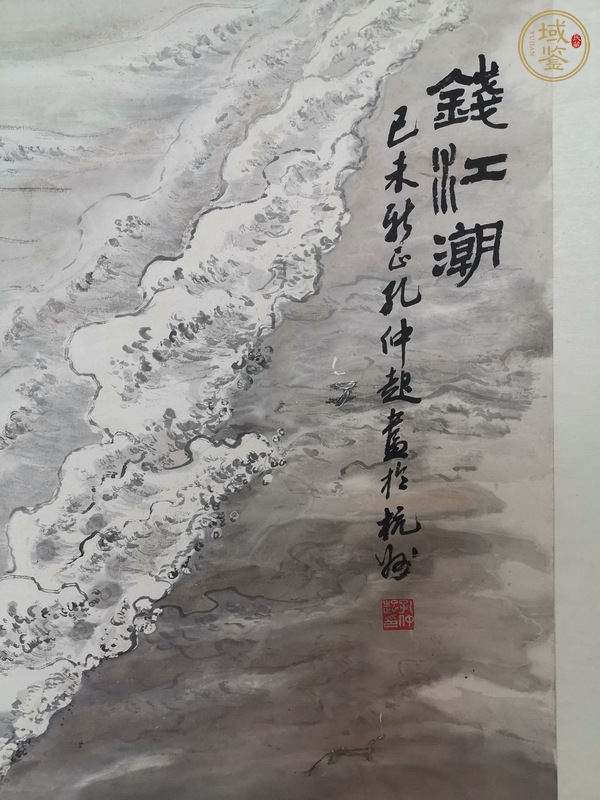 錢江潮
己未新正孔仲起畫於杭州
孔仲起印
域鉴
YUJIAN